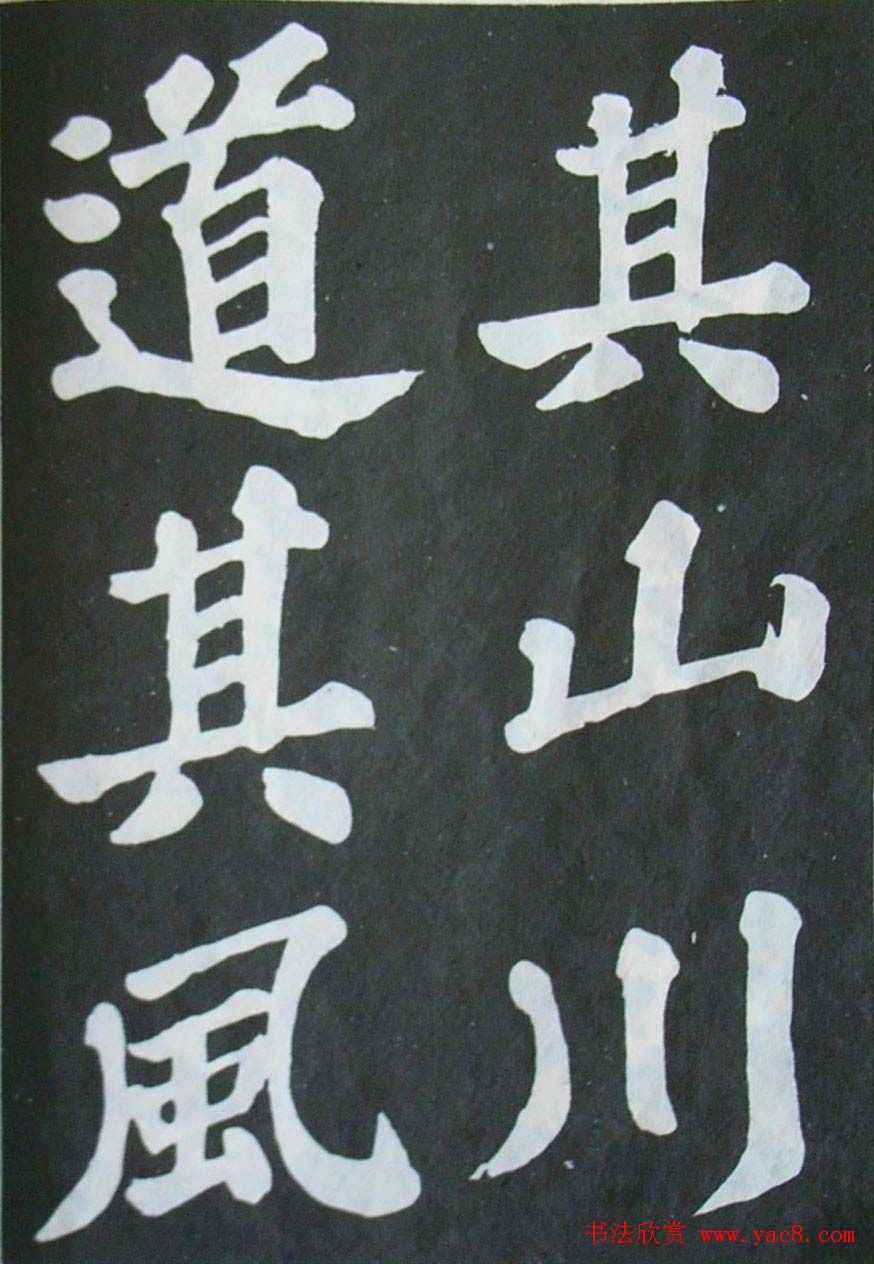 其山川
道其風
书法欣赏 www.yac8.com